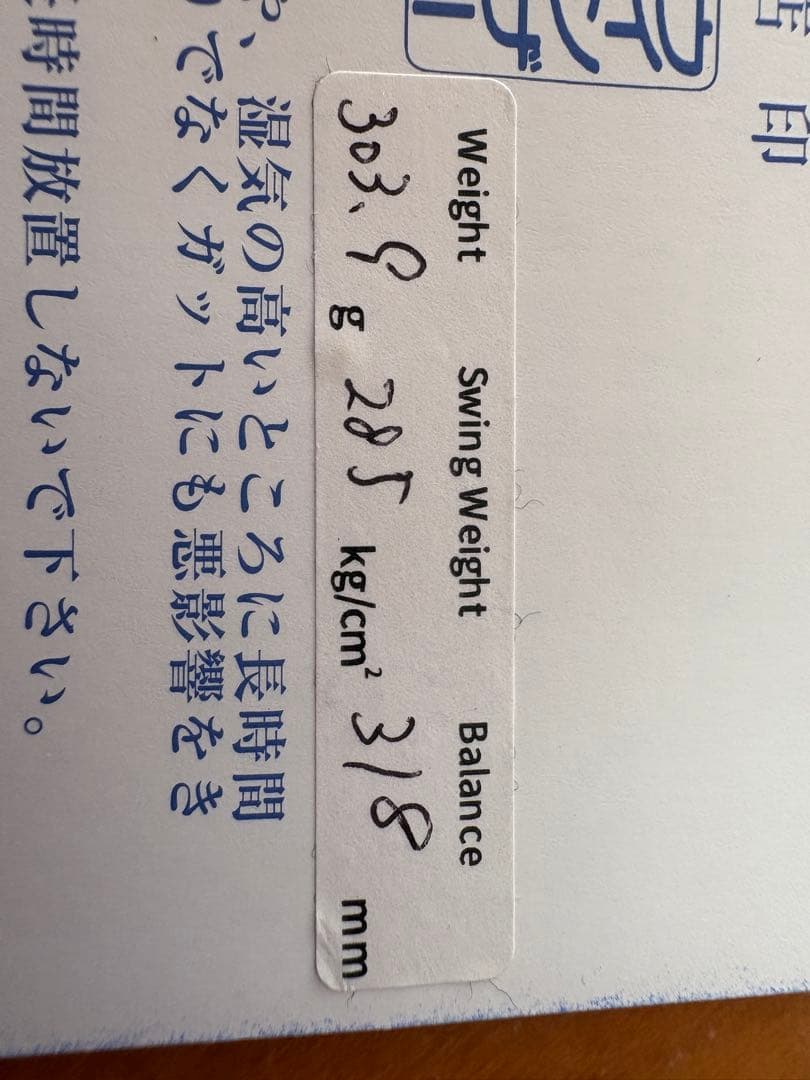 印
Weight Swing Weight Balance
303.9 g 285 kg/cm² 318 mm
、湿気の高いところに長時間
でなくガットにも悪影響をき
時間放置しないで下さい。